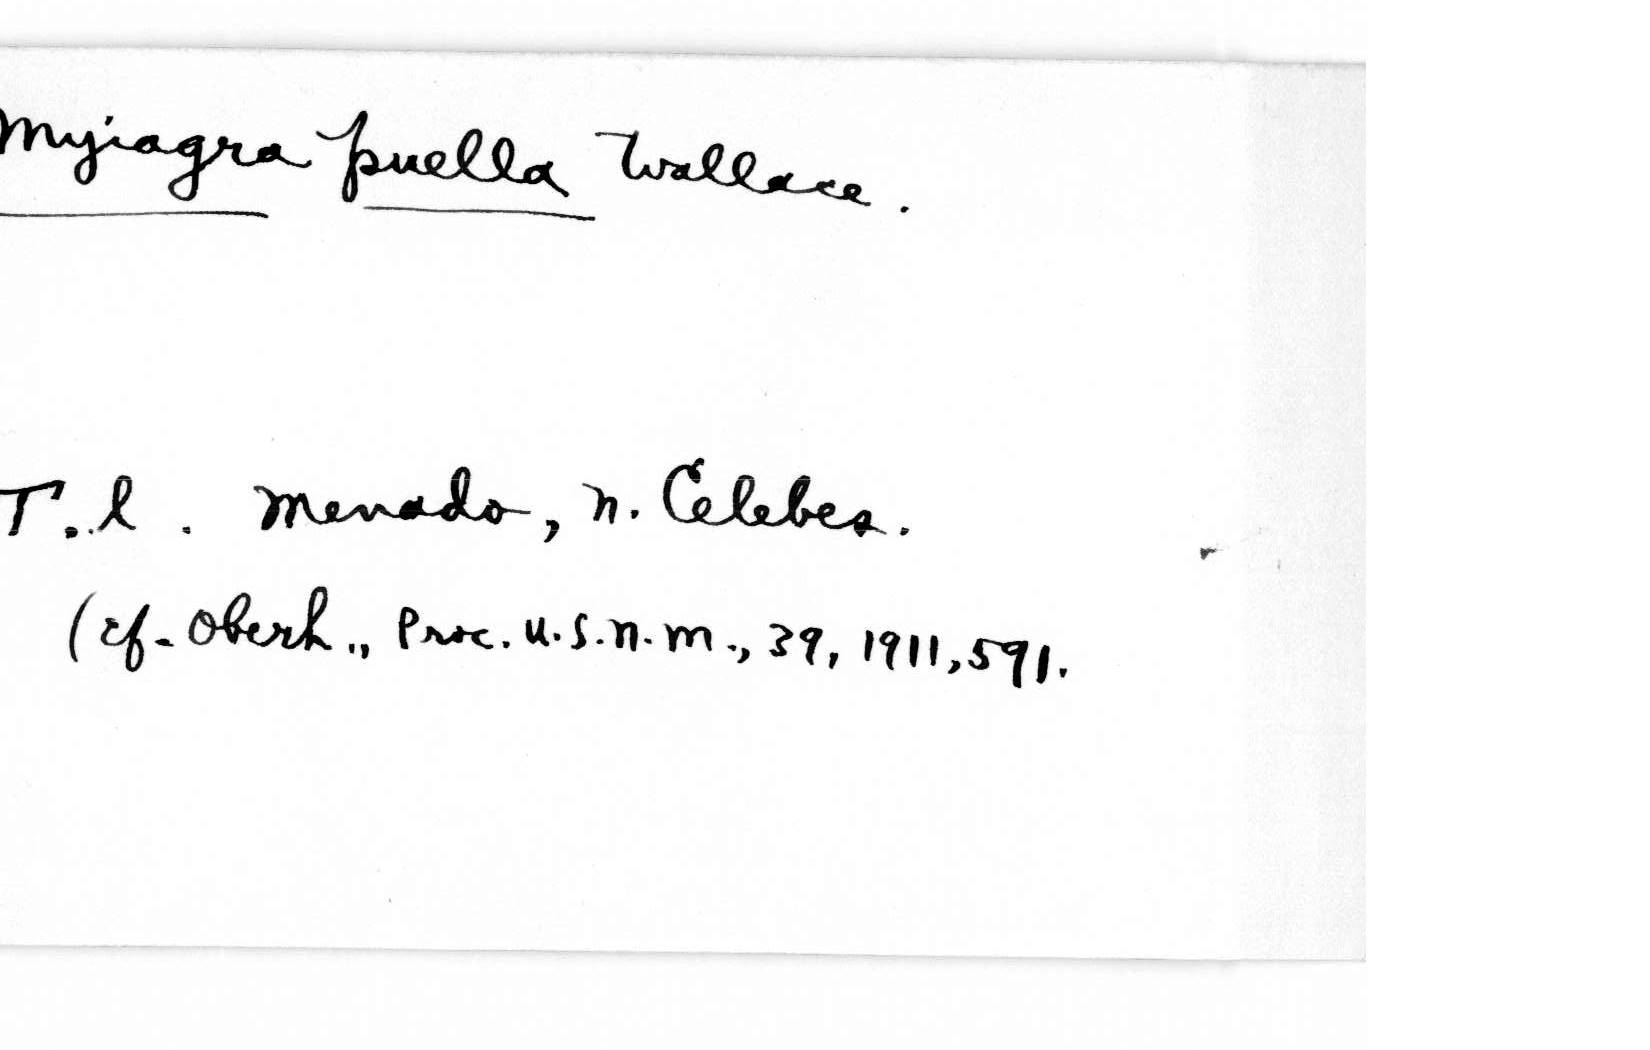 Myiagra puella Wallace.
T.l. Menado, n. Celebes.
(cf. Oberh., Proc. U.S.N.M., 39, 1911, 591.